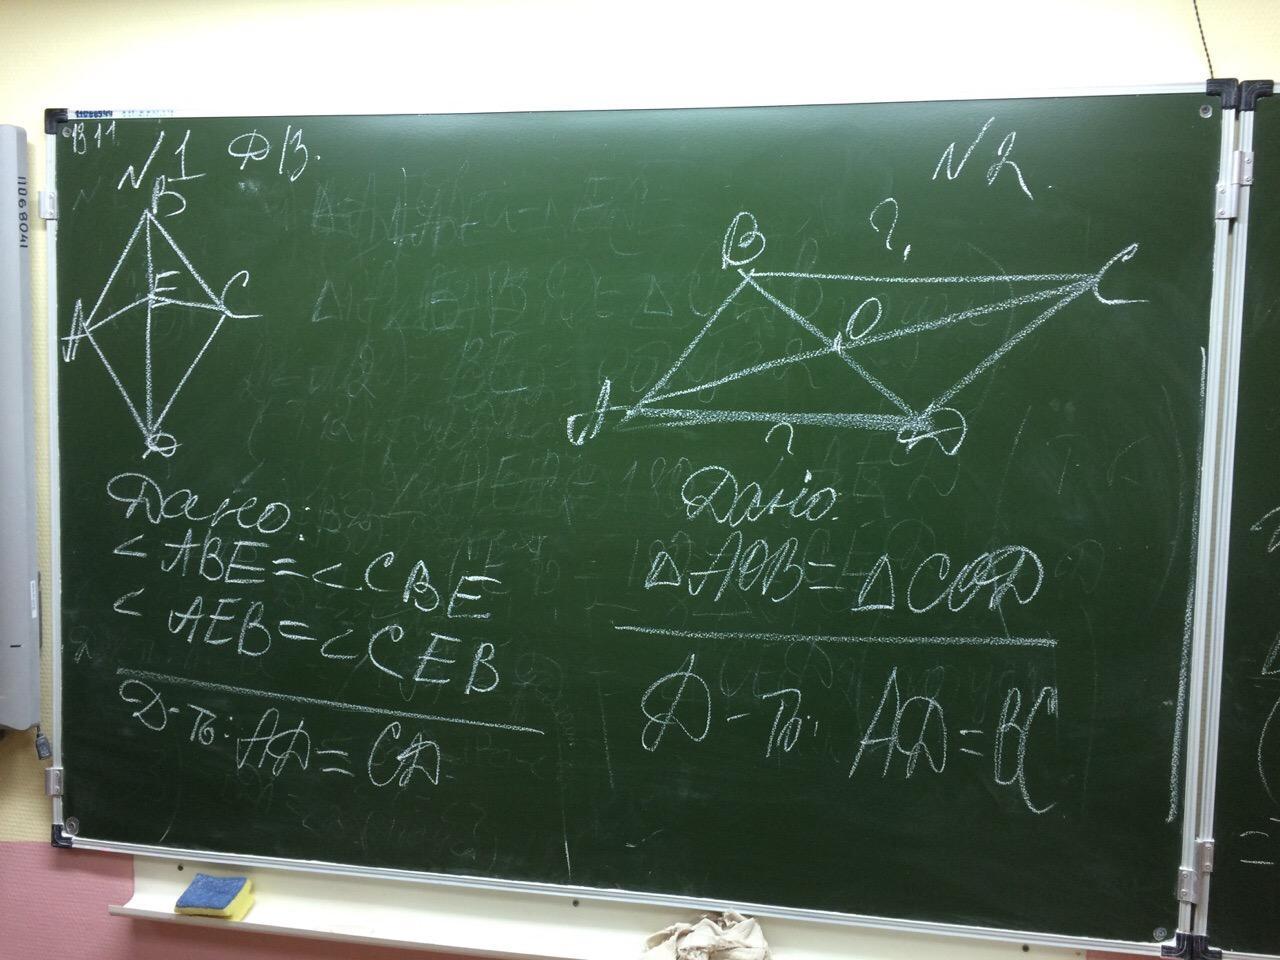 В 11
№1 Д/З.
B
E
C
A
D
Дано:
< ABE = < CBE
< AEB = < CEB
Д-ть: AD = CD
№2.
B
?
C
O
A
?
D
Дано:
△ AOB = △ COD
Д-ть: AD = BC
11068041